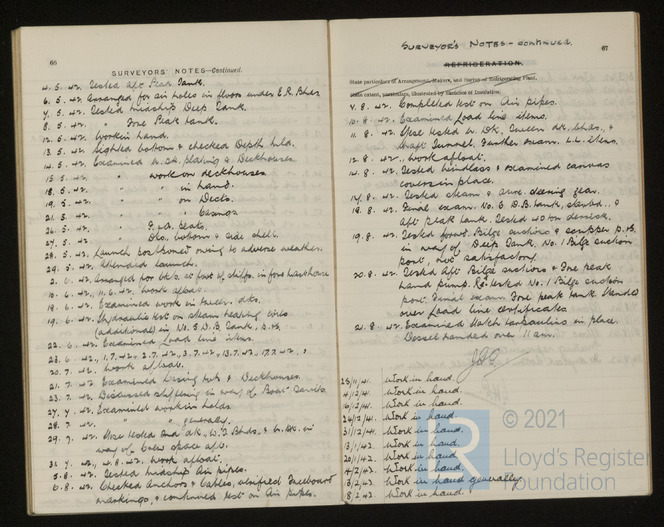 66
SURVEYORS' NOTES—Continued.
4. 5. 42. Tested Aft Peak Tank.
6. 5. 42. Arranged for air holes in floors under E.R. Bhds
7. 5. 42. Tested midship Deep Tank.
8. 5. 42. " Fore Peak tank.
12. 5. 42. Work in hand.
13. 5. 42. Sighted bottom & checked Depth Mld.
14. 5. 42. Examined W. dk. plating & Deckhouses
15. 5. 42. " work on deckhouses
18. 5. 42. " " in hand.
19. 5. 42. " " on Decks.
21. 5. 42. " " Casings
26. 5. 42. " F. & A. peaks.
27. 5. 42. " Dko. bottom & side shell.
28. 5. 42. Launch postponed owing to adverse weather.
29. 5. 42. Attended launch.
2. 6. 42. Arranged for at foot of stiffs. in fore
10. 6. 42., 11. 6. 42. Work afloat.
16. 6. 42. Examined work in tween dks.
19. 6. 42. Hydraulic test on steam heating coils
(additional) in No. 5 D.B. Tank, p.s.
22. 6. 42. Examined Load line items.
23. 6. 42., 1.7.42., 2.7.42., 3.7.42., 13.7.42., 17.7.42., &
20. 7. 42. Work afloat.
21. 7. 42. Examined & Deckhouses.
23. 7. 42. Discussed stiffening in way of Boat Davits
27. 7. 42. Examined work in holds.
28. 7. 42. " " generally.
29. 7. 42. Hose tested 2nd dk., W.T. Bhds. & W. dk. in
way of Crew space aft.
31. 7. 42., 4. 8. 42. Work afloat.
5. 8. 42. Tested midship Air pipes.
6. 8. 42. Checked Anchors & Cables, verified Freeboard
markings, & continued test on Air pipes.
SURVEYOR'S NOTES - continued.
67
REFRIGERATION.
State particulars of Arrangement, Makers, and System of Refrigerating Plant,
7. 8. 42. Completed test on Air pipes.
10. 8. 42. Examined Load line items.
11. 8. 42. Hose tested W. Dk., Tween dk. bhds., &
Shaft Tunnel. Further exam. L.L. items.
12. 8. 42. Work afloat.
14. 8. 42. Tested windlass & examined canvas
covers in place.
17. 8. 42. Tested steam & steering gear.
18. 8. 42. Final exam. No. 6 D.B. tank, starbd., &
aft peak tank. Tested 40 ton derrick.
19. 8. 42. Tested forwd. Bilge suctions & scupper p.s.
in way of Deep Tank, No. 1 Bilge suction
port, not satisfactory.
20. 8. 42. Tested Aft Bilge suctions & Fore peak
hand pump. Re-tested No. 1 Bilge suction
port. Final exam. Fore peak tank. Handed
over Load line certificates
21. 8. 42. Examined Hatch tarpaulins in place.
Vessel handed over 11 am.
28/11/41. Work in hand.
4/12/41. Work in hand.
16/12/41. Work in hand.
24/12/41. Work in hand.
31/12/41. Work in hand.
13/1/42. Work in hand.
20/1/42. Work in hand.
4/2/42. Work in hand.
13/2/42. Work in hand generally
18/2/42. Work in hand.
© 2021
Lloyd's Register
Foundation